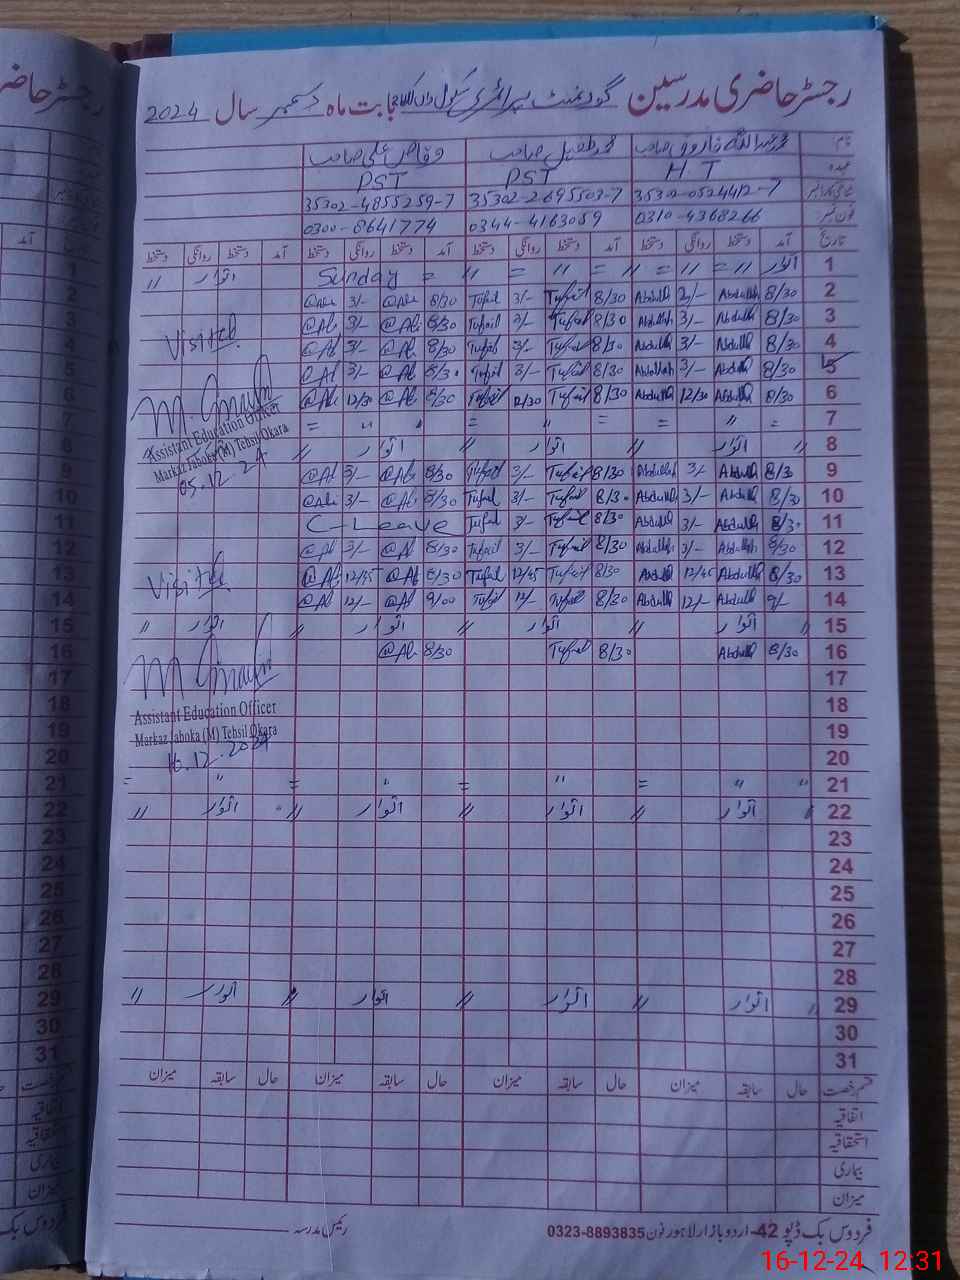 رجسٹر حاضری مدرسین گورنمنٹ پرائمری سکول بابت ماہ دسمبر سال 2024
نام محمد عبداللہ فاروق صاحب محمد طفیل صاحب وقاص علی صاحب
عہدہ H T PST PST
35302-0524412-7 35302-2695503-7 35302-4855259-7
فون نمبر 0310-4368266 0344-4163059 0300-8641774
تاریخ آمد دستخط روانگی دستخط آمد دستخط روانگی دستخط آمد دستخط روانگی دستخط آمد دستخط روانگی دستخط
1 اتوار " = " = " = " = " = Sunday اتوار "
2 8/30 Abdullah 3/- Abdullah 8/30 Tufail 3/- Tufail 8/30 @Ali 3/- @Ali
3 8/30 Abdullah 3/- Abdullah 8/30 Tufail 3/- Tufail 8/30 @Ali 3/- @Ali Visited
4 8/30 Abdullah 3/- Abdullah 8/30 Tufail 3/- Tufail 8/30 @Ali 3/- @Ali
5 8/30 Abdullah 3/- Abdullah 8/30 Tufail 3/- Tufail 8/30 @Ali 3/- @Ali
6 8/30 Abdullah 12/30 Abdullah 8/30 Tufail 12/30 Tufail 8/30 @Ali 12/30 @Ali
Assistant Education Officer
Markaz Jaboka (M) Tehsil Okara
05.12.24
7 = " = " = " " =
8 " اتوار " اتوار " اتوار "
9 8/30 Abdullah 3/- Abdullah 8/30 Tufail 3/- Tufail 8/30 @Ali 3/- @Ali
10 8/30 Abdullah 3/- Abdullah 8/30 Tufail 3/- Tufail 8/30 @Ali 3/- @Ali
11 8/30 Abdullah 3/- Abdullah 8/30 Tufail 3/- Tufail C-Leave
12 8/30 Abdullah 3/- Abdullah 8/30 Tufail 3/- Tufail 8/30 @Ali 3/- @Ali
13 8/30 Abdullah 12/45 Abdullah 8/30 Tufail 12/45 Tufail 8/30 @Ali 12/45 @Ali Visited
14 9/- Abdullah 12/- Abdullah 8/30 Tufail 12/- Tufail 9/00 @Ali 12/- @Ali
15 اتوار " اتوار " اتوار " اتوار "
16 8/30 Abdullah 8/30 Tufail 8/30 @Ali
17
18
Assistant Education Officer
19
Markaz Jaboka (M) Tehsil Okara
20
16.12.2024
21 " " = " = " = " =
22 " اتوار " اتوار " اتوار " اتوار "
23
24
25
26
27
28
29 " اتوار " اتوار " اتوار " اتوار "
30
31
قسم رخصت حال سابقہ میزان حال سابقہ میزان حال سابقہ میزان حال سابقہ میزان
اتفاقیہ
استحقاقیہ
بیماری
میزان
فردوس بک ڈپو 42-اردو بازار لاہور فون 0323-8893835 رئیس مدرسہ
16-12-24 12:31
رجسٹر حاضر
آمد
1
2
3
4
5
6
7
8
9
10
11
12
13
14
15
16
17
18
19
20
21
22
23
24
25
26
27
28
29
30
31
قسم رخصت
اتفاقیہ
استحقاقیہ
بیماری
میزان
فردوس بک